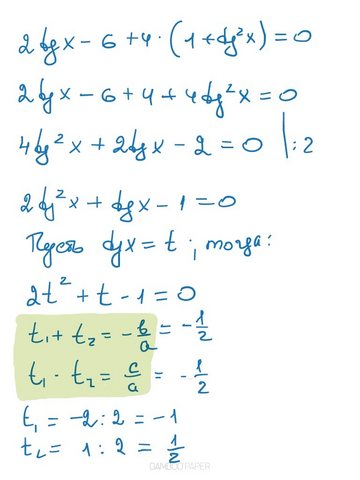 2tgx - 6 + 4 · (1 + tg²x) = 0
2tgx - 6 + 4 + 4tg²x = 0
4tg²x + 2tgx - 2 = 0 | : 2
2tg²x + tgx - 1 = 0
Пусть tgx = t ; тогда:
2t² + t - 1 = 0
t₁ + t₂ = -b/a = -1/2
t₁ · t₂ = c/a = -1/2
t₁ = -2 : 2 = -1
t₂ = 1 : 2 = 1/2
BAMBOO PAPER